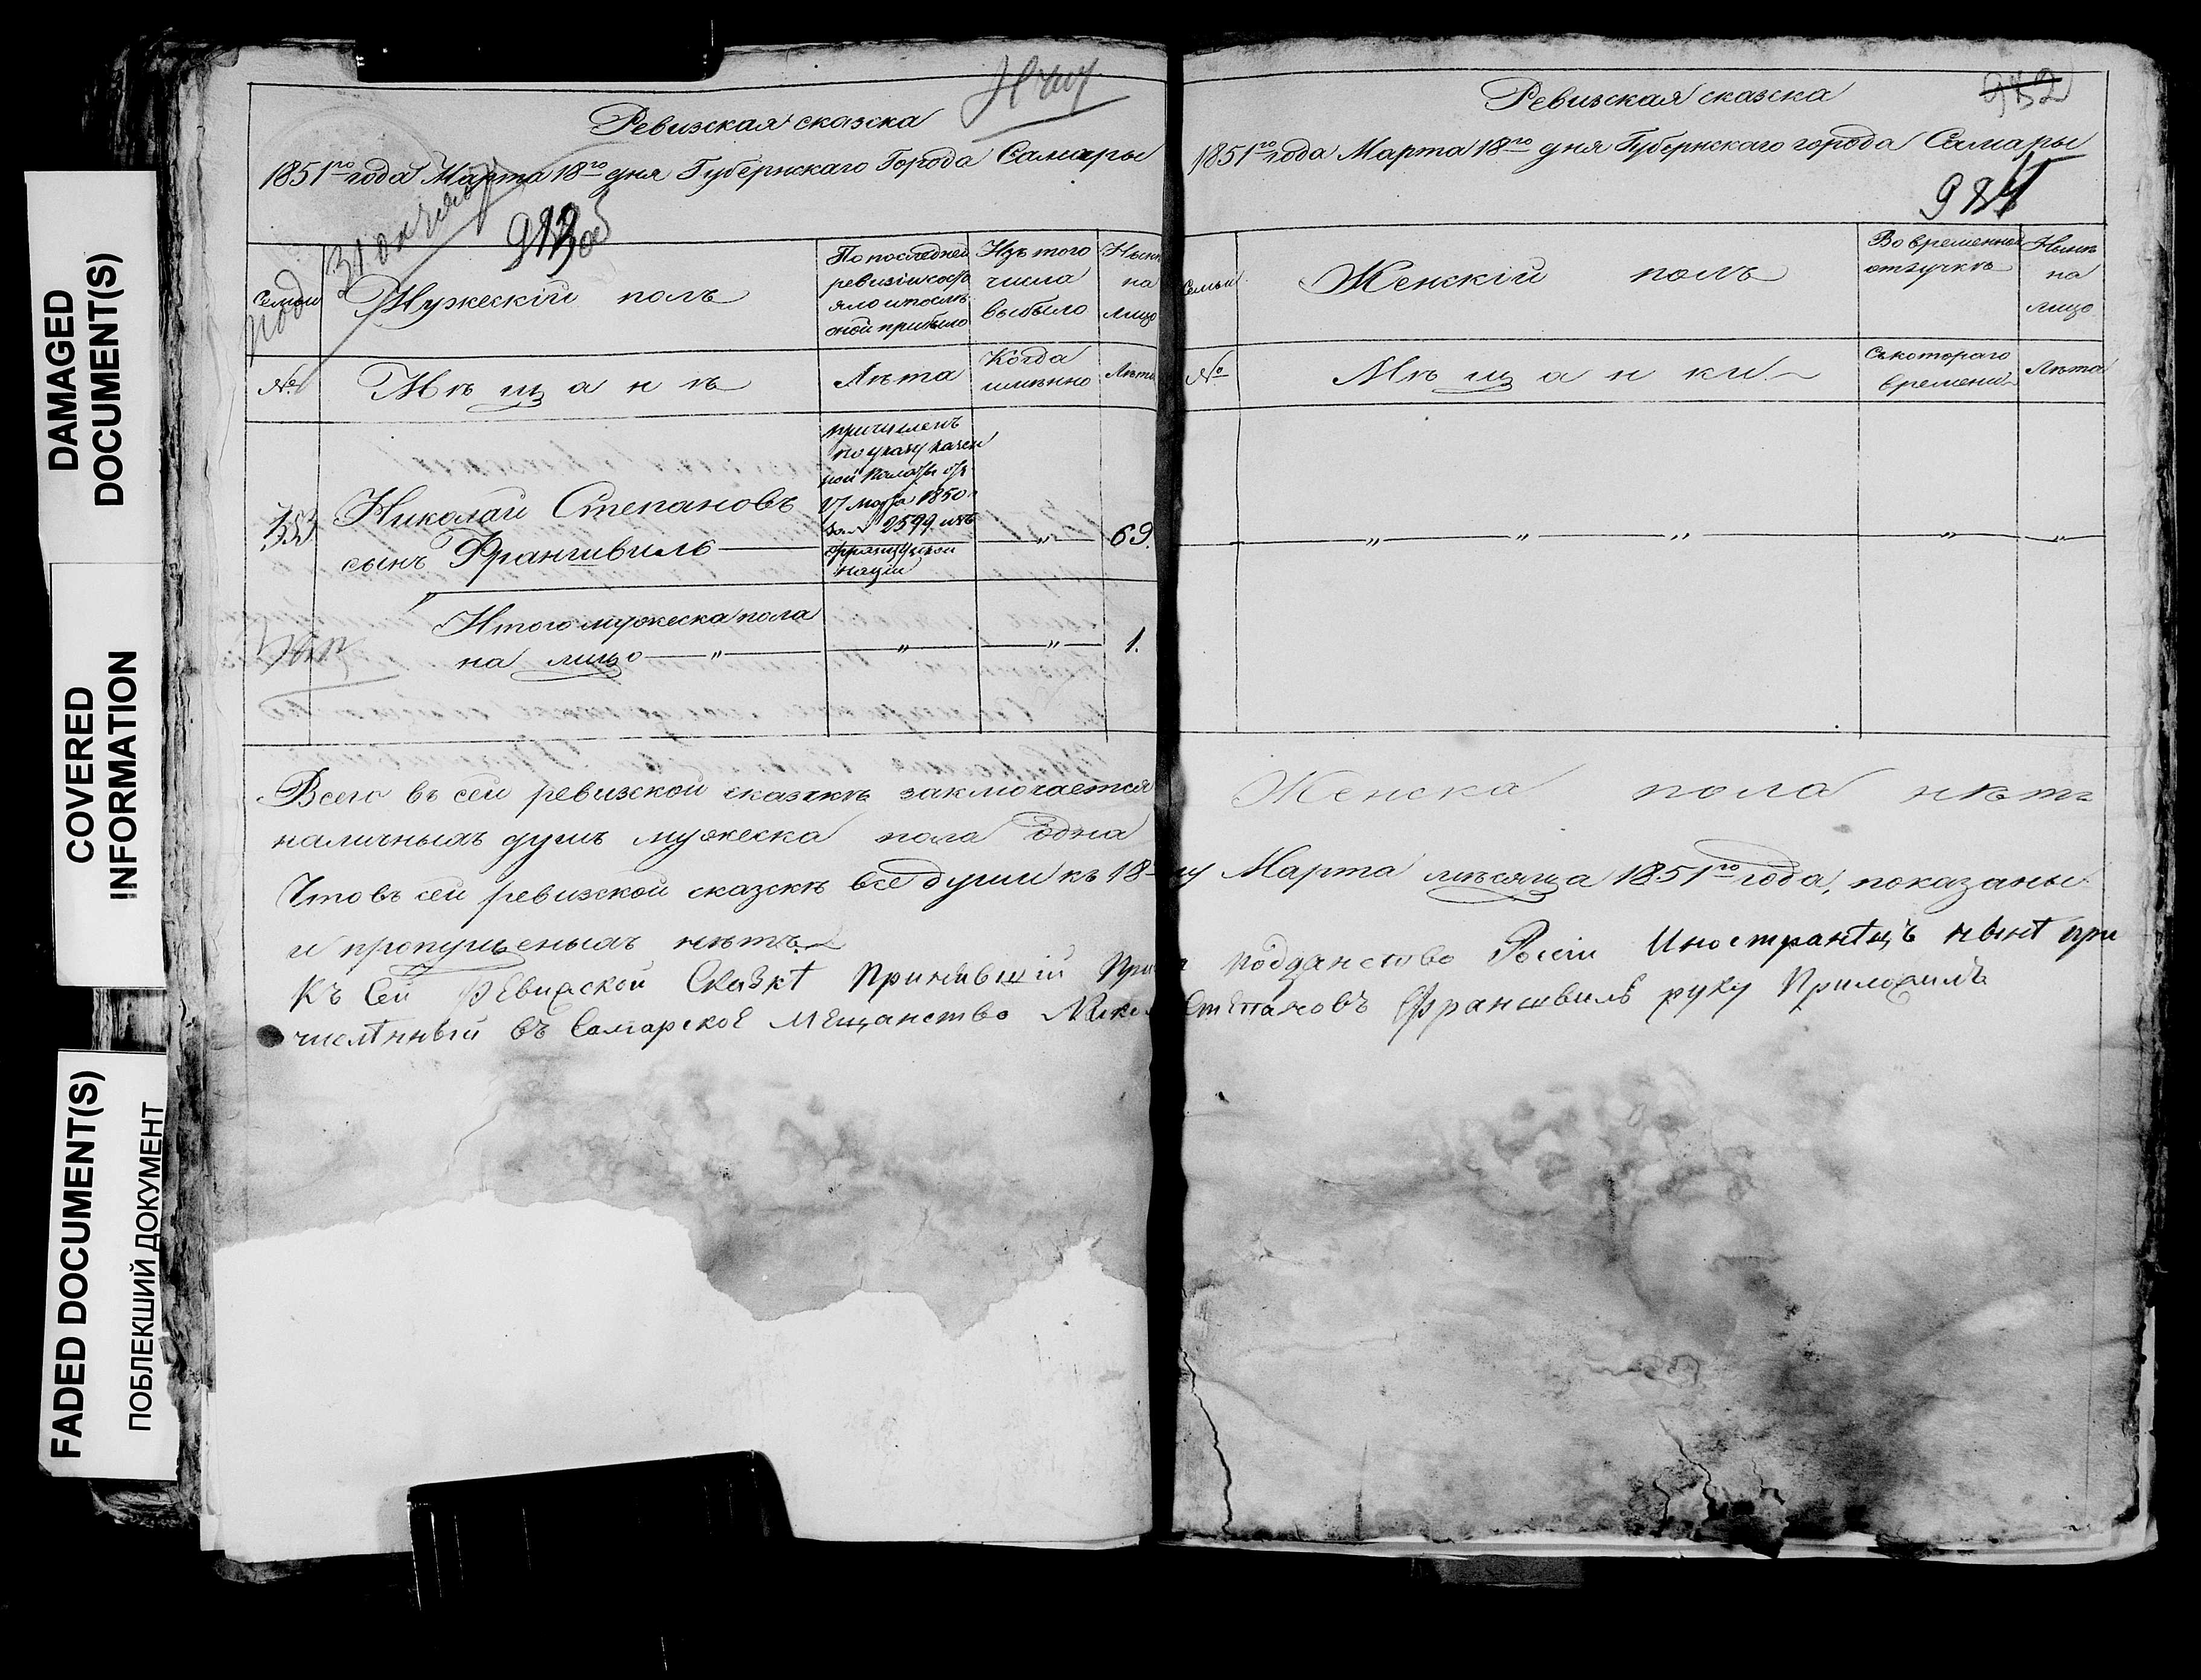 DAMAGED
DOCUMENT(S)
COVERED
INFORMATION
FADED DOCUMENT(S)
ПОБЛЕКШИЙ ДОКУМЕНТ
Ревизская сказка
1851го года Марта 18го дня Губернскаго Города Самары
Семьи
Мужескій полъ
По последней
ревизіи состо
яло и после
оной прибыло
Изъ того
числа
выбыло
Ныне
на
лицо
№
Мѣщанѣ
Лѣта
Когда
имянно
Лѣта
353
Николай Степановъ
сынъ Франшвиль
причисленъ
по указу казен
ной палаты отъ
17 марта 1850
за № 2599 изъ
французской
націи
69.
Итого мужеска пола
на лицо
1.
Всего въ сей ревизской сказкѣ заключается
наличныхъ душъ мужеска пола одна
Что въ сей ревизской сказкѣ все души къ 18
и пропущеныхъ нѣтъ
Къ сей Ревиской Сказкѣ Принявшій При
численный въ Самарское Мещанство Никол
Ревизская сказка
952
1851го года Марта 18го дня Губернскаго города Самары
Семьи
Женскій полъ
Во временной
отлучкѣ
Нынѣ
на
лицо
№
Мѣщанки
Съ котораго
времени
Лѣта
Женска пола нѣтъ
му Марта мѣсяца 1851го года, показаны
подданство Росіи Иностранецъ нынѣ при
Степановъ Франшвиль руку Приложилъ